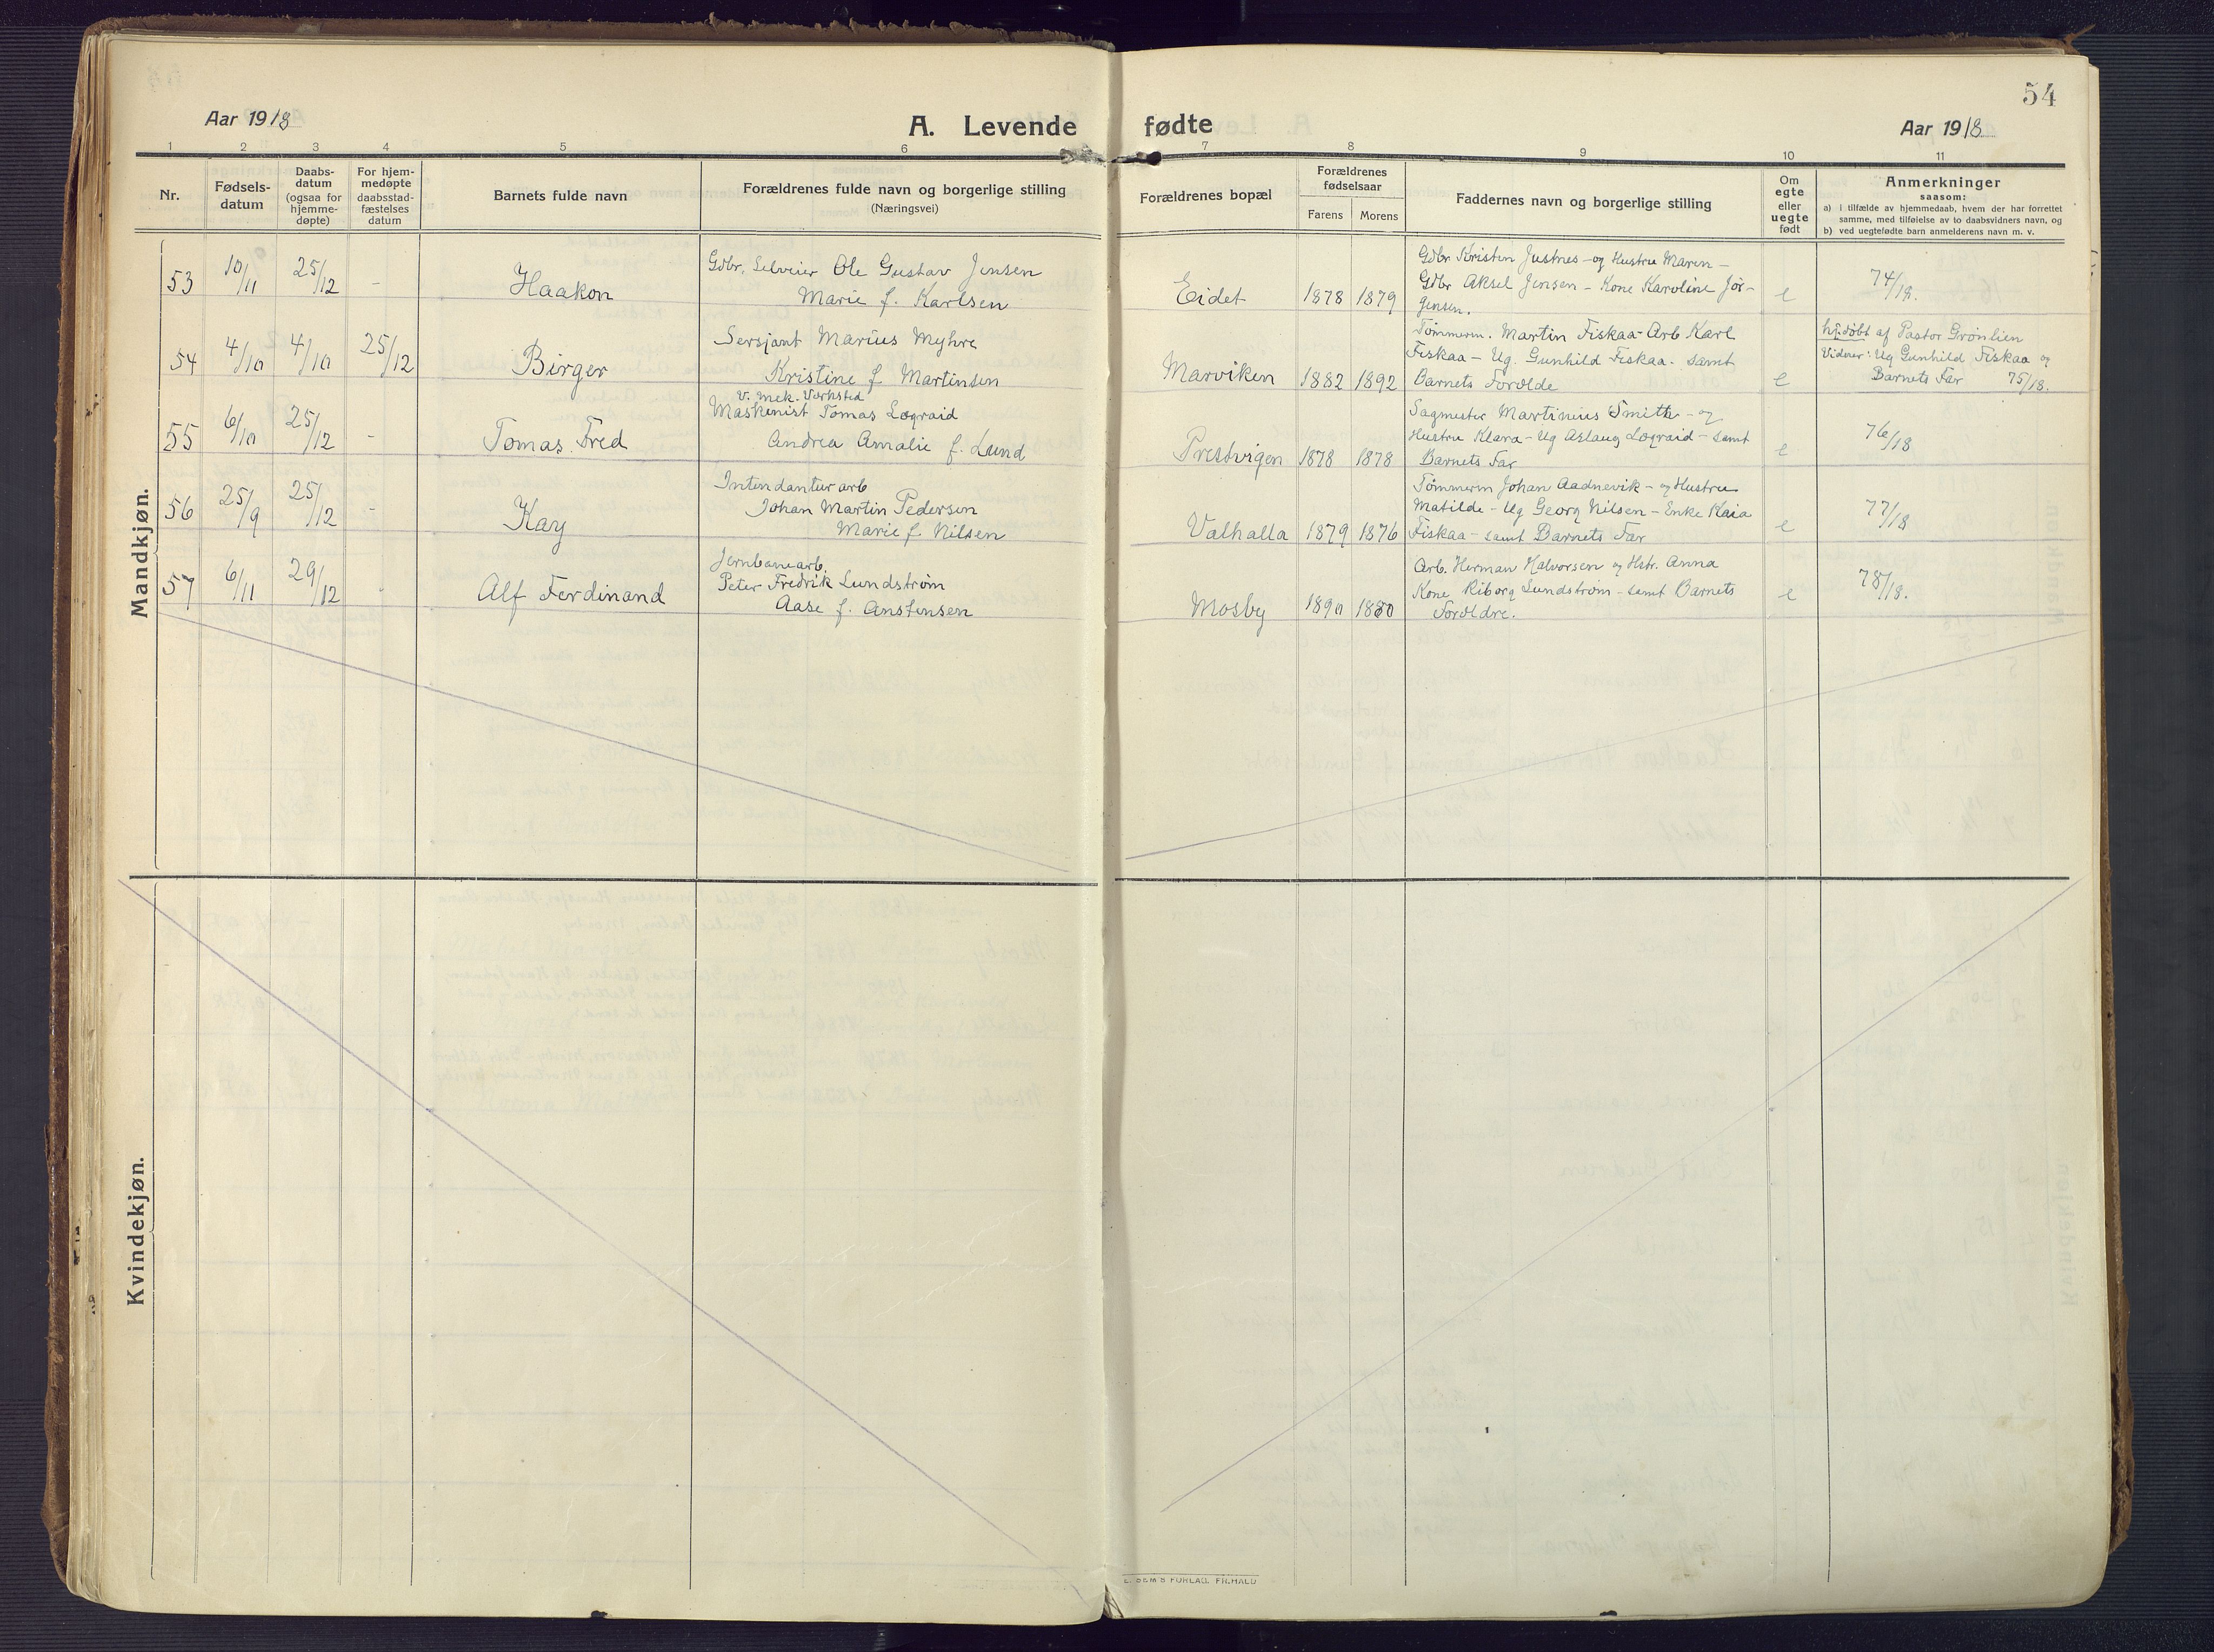 54
Aar 1918
A. Levende fødte
Aar 1918
1 2 3 4 5 6 7 8 9 10 11
Nr.
Fødsels-
datum
Daabs-
datum
(ogsaa for
hjemme-
døpte)
For hjem-
medøpte
daabsstad-
fæstelses
datum
Barnets fulde navn
Forældrenes fulde navn og borgerlige stilling
(Næringsvei)
Forældrenes bopæl
Forældrenes
fødselsaar
Farens Morens
Faddernes navn og borgerlige stilling
Om
egte
eller
uegte
født
Anmerkninger
saasom:
a) i tilfælde av hjemmedaab, hvem der har forrettet
samme, med tilføielse av to daabsvidners navn, og
b) ved uegtefødte barn anmelderens navn m. v.
Mandkjøn.
53 10/11 25/12 - Haakon
Gdbr. Selveier Ole Gustav Jensen
Marie f. Karlsen
Eidet 1878 1879
Gdbr Kristen Justnes - og Hustru Maren -
Gdbr Aksel Jensen - Kone Karoline Jør-
gensen.
e 74/18.
54 4/10 4/10 25/12 Birger
Sersjant Marius Myhre
Kristine f. Martinsen
Marviken 1882 1892
Tømmerm. Martin Fiskaa - Arb Karl
Fiskaa - Ug. Gunhild Fiskaa - samt
Barnets Forældre
e
hj.døbt af Pastor Grønlien
Vidner: Ug Gunhild Fiskaa og
Barnets Far 75/18.
55 6/10 25/12 - Tomas Fred
v. mek. Værksted
Maskinist Tomas Løgraid
Andrea Amalie f. Lund
Prestvigen 1878 1878
Sagmester Martinius Smith - og
Hustru Klara - Ug Aslaug Løgraid - samt
Barnets Far
e 76/18
56 25/9 25/12 - Kay
Intendantur arb
Johan Martin Pedersen
Marie f. Nilsen
Valhalla 1879 1876
Tømmerm Johan Aadnevik - og Hustru
Matilde - Ug Georg Nilsen - Enke Kaia
Fiskaa - samt Barnets Far
e 77/18
57 6/11 29/12 - Alf Ferdinand
Jernbanearb.
Peter Fredrik Lundstrøm
Aase f. Anstensen
Mosby 1890 1880
Arb. Herman Halvorsen og Hstr. Anna
Kone Riborg Lundstrøm - samt Barnets
Forældre.
e 78/18.
Kvindekjøn.
E. SEM'S FORLAG, FR.HALD